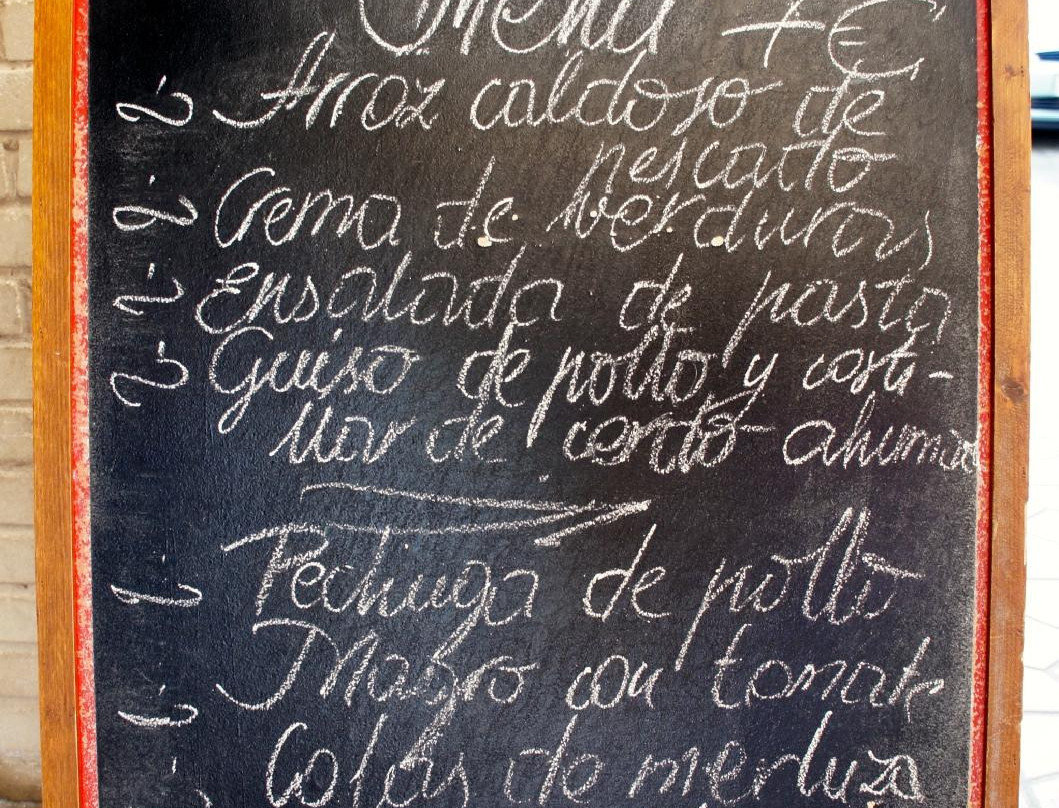 Menu 7 €
Arroz caldoso de
pescado
Crema de verduras
Ensalada de pasta
Guiso de pollo y costi-
llar de cerdo ahumad
Pechuga de pollo
Magro con tomate
Colas de merluza